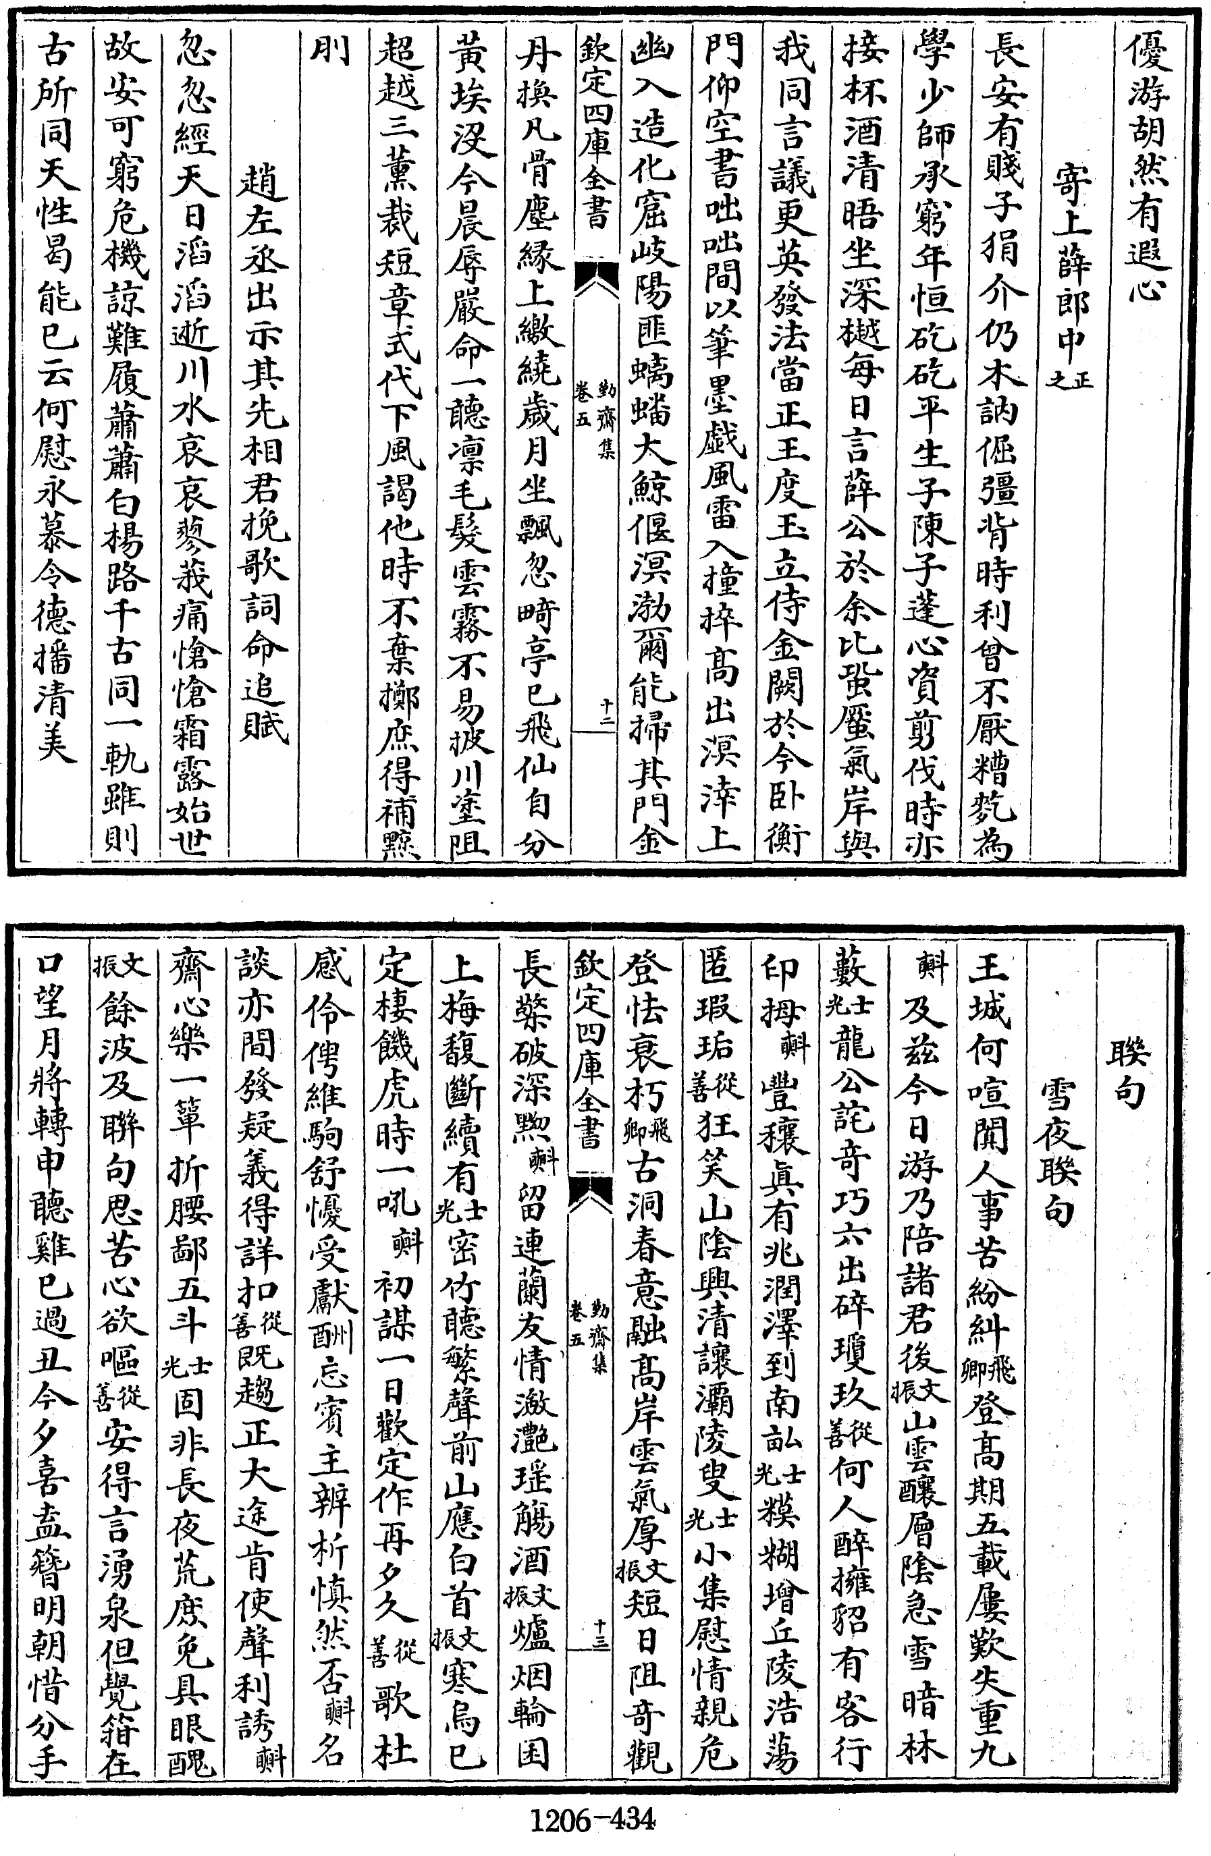 優游胡然有遐心
寄上薛郎中正之
長安有賤子狷介仍木訥倔彊背時利曾不厭糟麧為
學少師承窮年恒矻矻平生子陳子蓬心資剪伐時亦
接杯酒清晤坐深樾每日言薛公於余比蛩蟨氣岸與
我同言議更英發法當正王度玉立侍金闕於今卧衡
門仰空書咄咄間以筆墨戯風雷入撞捽髙出溟涬上
幽入造化窟岐陽匪螭蟠大鯨偃溟渤爾能掃其門金
欽定四庫全書
勤齋集
卷五
十二
丹換凡骨塵緣上繳繞歲月坐飄忽畸亭已飛仙自分
黃埃没今晨辱嚴命一聽凛毛髮雲霧不易披川塗阻
超越三薰裁短章式代下風謁他時不棄擲庶得補黥
刖
趙左丞出示其先相君挽歌詞命追賦
忽忽經天日滔滔逝川水哀哀蓼莪痛愴愴霜露始世
故安可窮危機諒難履蕭蕭白楊路千古同一軌雖則
古所同天性曷能已云何慰永慕令德播清美
聨句
雪夜聨句
王城何喧闐人事苦紛糾飛卿登髙期五載屢歎失重九
㪺及茲今日游乃陪諸君後文振山雲釀層陰急雪暗林
藪士光龍公詫奇巧六出碎瓊玖從善何人醉擁貂有客行
印拇㪺豐穰真有兆潤澤到南畝士光糢糊增丘陵浩蕩
匿瑕垢從善狂笑山陰興清讓灞陵叟士光小集慰情親危
登怯衰朽飛卿古洞春意融髙岸雲氣厚文振短日阻奇觀
欽定四庫全書
勤齋集
卷五
十三
長檠破深黝㪺留連蘭友情瀲灩瑶觴酒文振爐烟輪囷
上梅馥斷續有士光密竹聽繁聲前山應白首文振寒烏已
定棲饑虎時一吼㪺初謀一日歡定作再夕久從善歌杜
感伶俜維駒舒懮受獻酬忘賓主辨析慎然否㪺名
談亦間發疑義得詳扣從善既趨正大途肯使聲利誘㪺
齋心樂一簞折腰鄙五斗士光固非長夜荒庶免具眼醜
文振餘波及聨句思苦心欲嘔從善安得言湧泉但覺箝在
口望月將轉申聽雞已過丑今夕喜盍簪明朝惜分手
1206-434